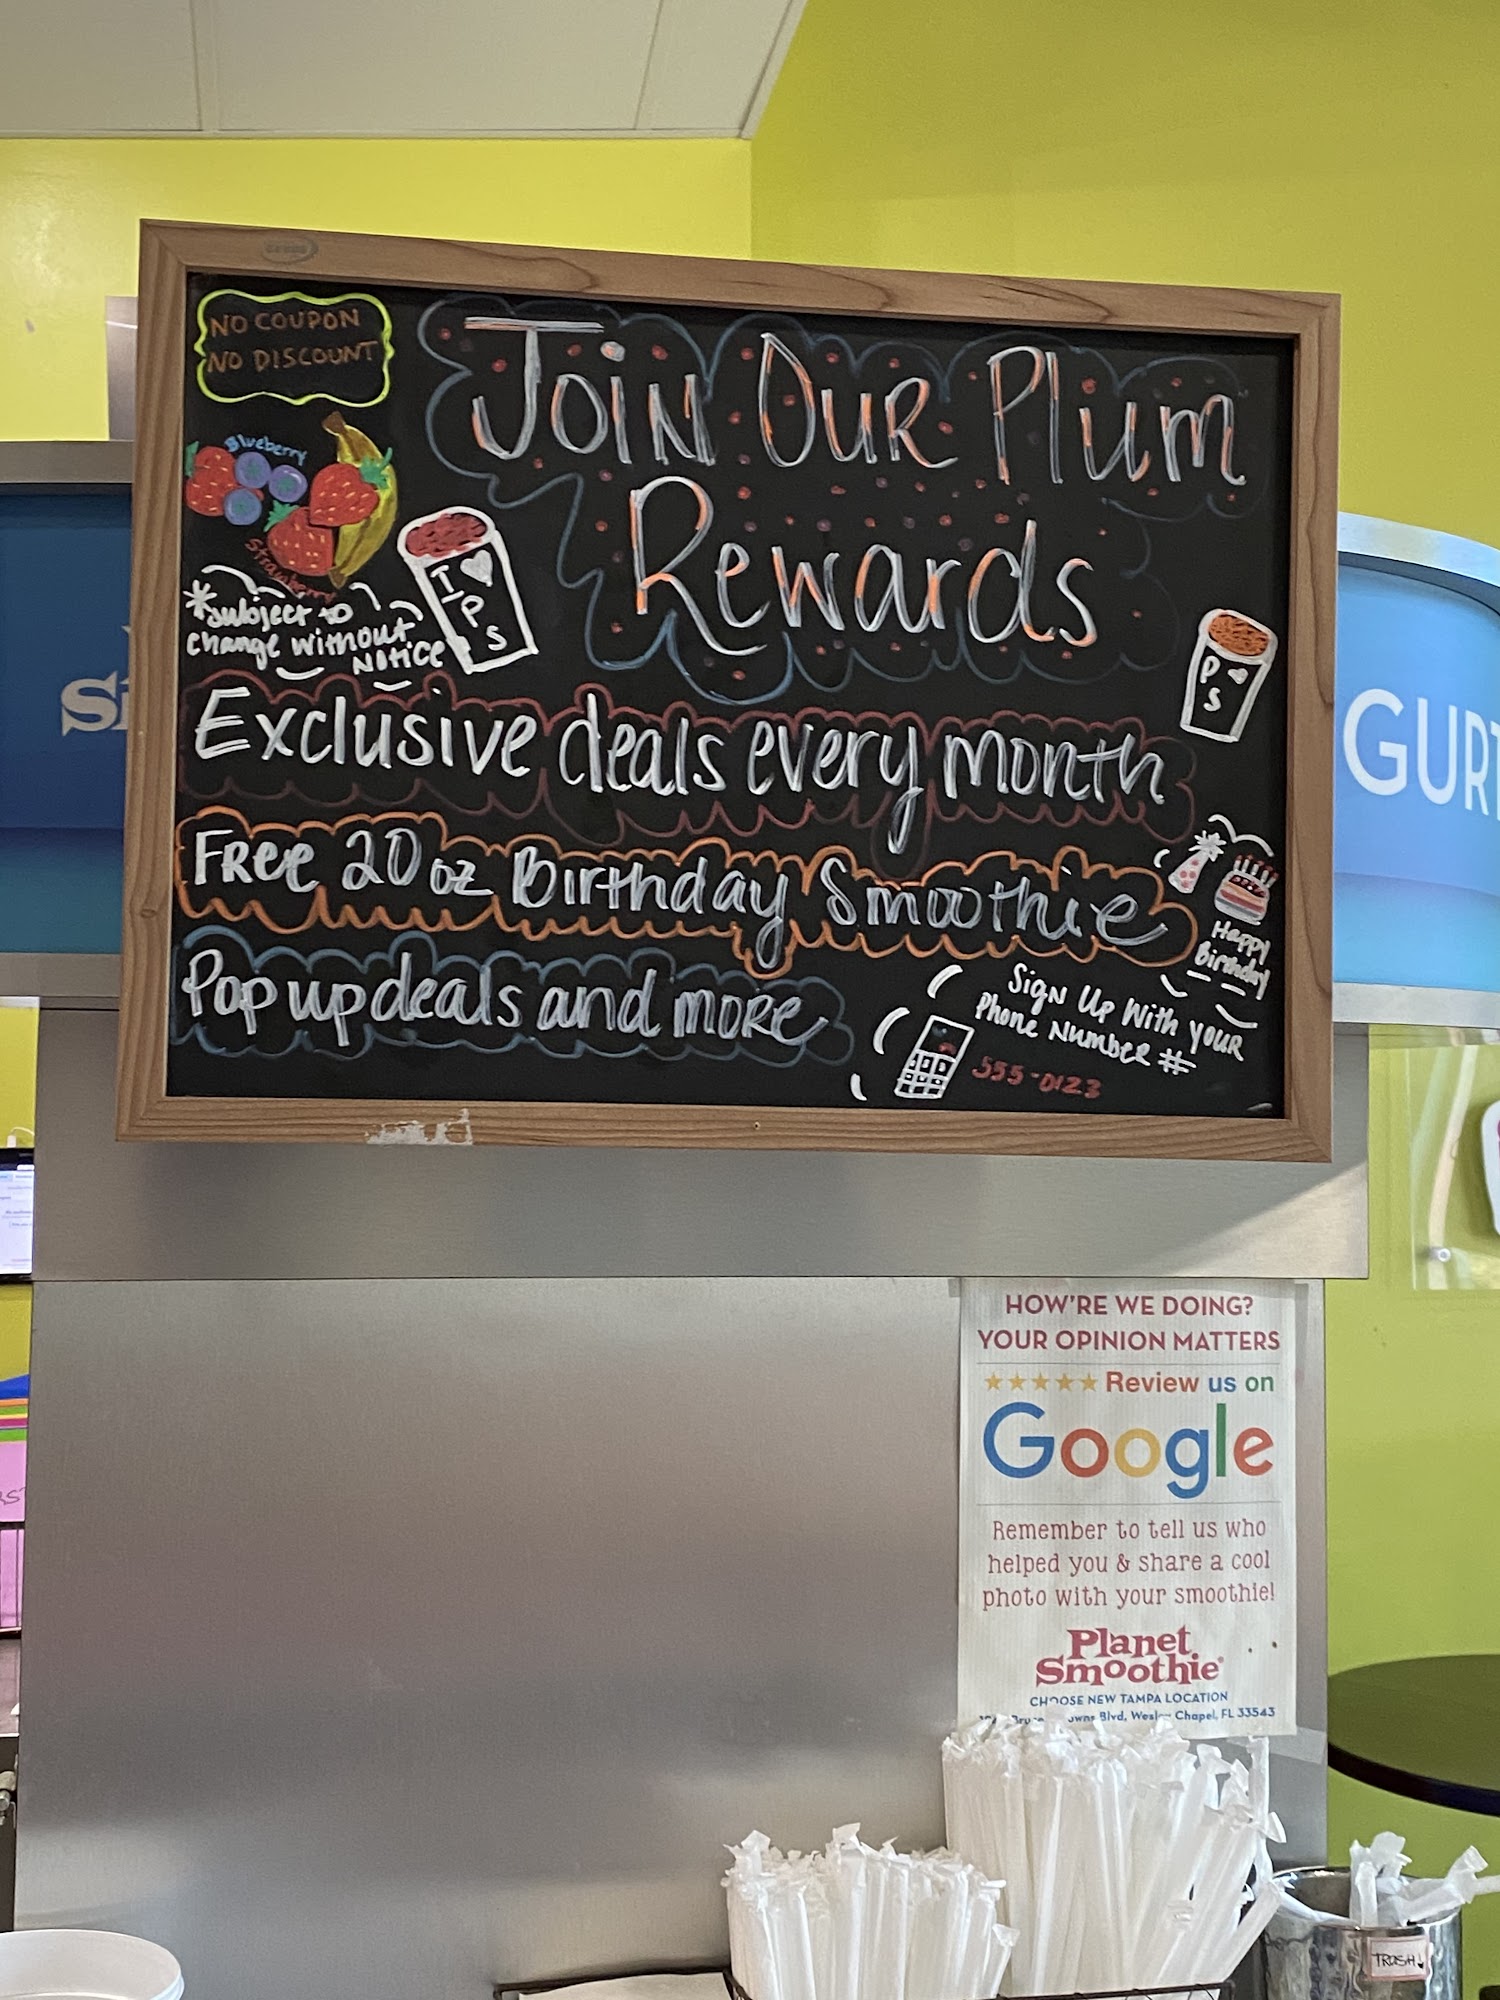 NO COUPON
NO DISCOUNT
Join Our Plum
Rewards
Blueberry
Strawberry
*subject to
change without
Notice
I ♥
P
S
P ♥
S
Exclusive deals every month
Free 20 oz Birthday Smoothie
Happy
Birthday
Pop up deals and more
Sign Up With Your
Phone Number #
555-0123
GURT
HOW'RE WE DOING?
YOUR OPINION MATTERS
★★★★★ Review us on
Google
Remember to tell us who
helped you & share a cool
photo with your smoothie!
Planet
Smoothie®
CHOOSE NEW TAMPA LOCATION
Blvd, Wesley Chapel, FL 33543
TRASH